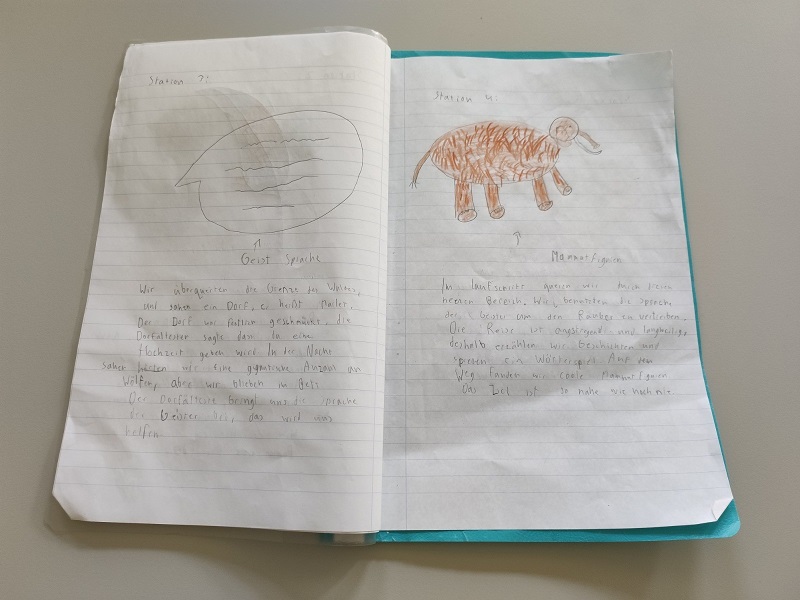 Station ?:
Geist Sprache
Wir überquerten die Grenze der Wölfer,
und sahen ein Dorf, es heißt
Der Dorf war festlich geschmückt, die
Dorfälteren sagte das in eine
Hochzeit geben wird In der Nacht
sahen wir eine gigantische Anzahl an
Wölfen, aber wir blieben im
Der Dorfältere bringt uns die sprache
der Geister bei, das wird uns
helfen
Station 4:
Mammutfiguren
Im Laufschritt queren wir
Bereich. Wir benutzten die Sprache
der Geister um den Räuber zu vertreiben.
Die Reise ist anstrengend und langweilig,
deshalb erzählten wir Geschichten und
spielten ein Wörterspiel Auf dem
Weg fanden wir coole Mammutfiguren
Das Ziel ist so nahe wie noch nie.